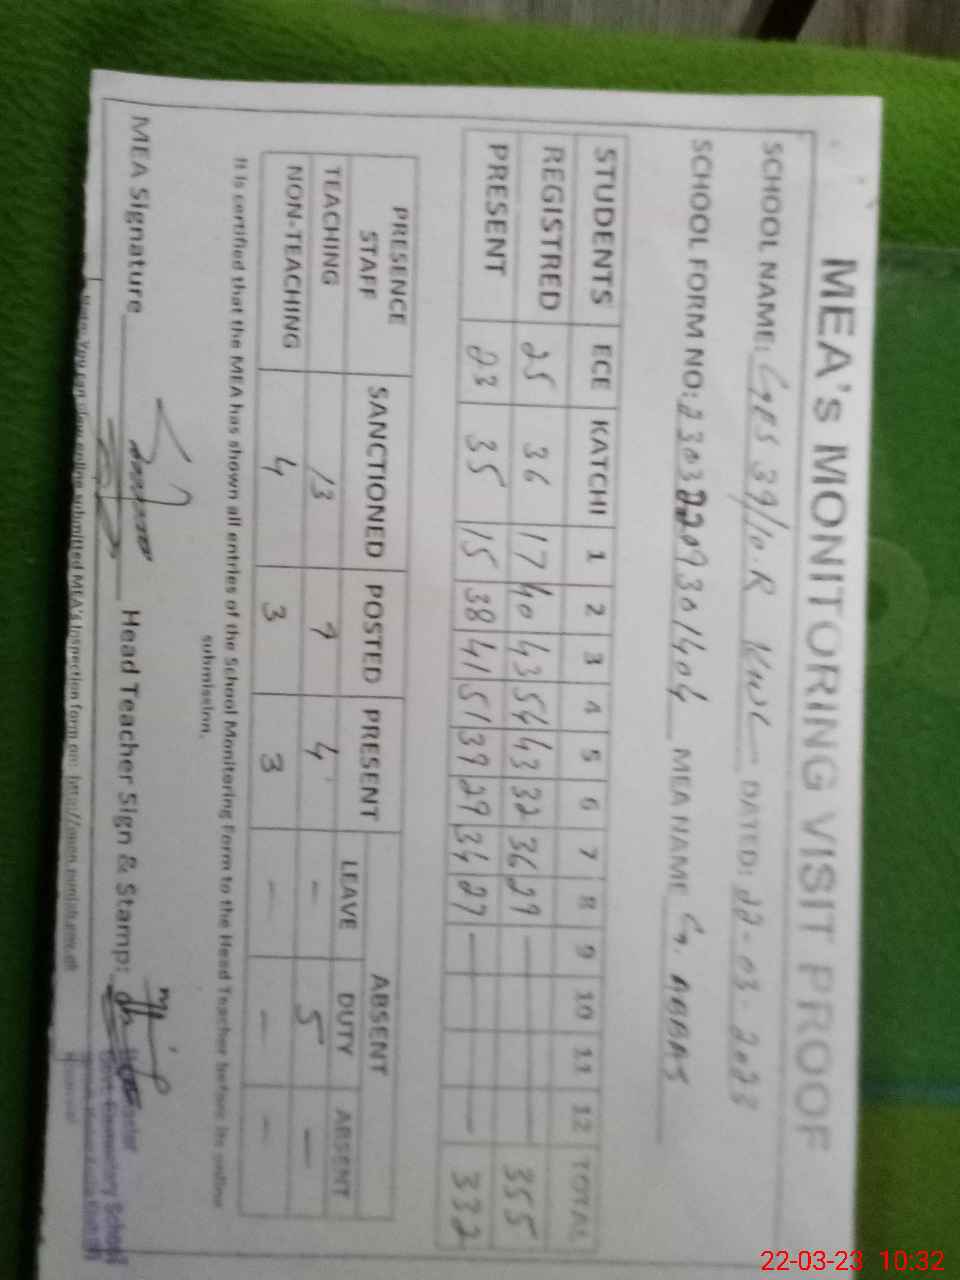 MEA's MONITORING VISIT PROOF
SCHOOL NAME: GES 39/10.R KWL DATED: 22-03-2023
SCHOOL FORM NO: 23032209301404 MEA NAME G. ABBAS
STUDENTS ECE KATCHI 1 2 3 4 5 6 7 8 9 10 11 12 TOTAL
REGISTRED 25 36 17 40 43 54 43 32 36 29 — — 355
PRESENT 23 35 15 38 41 51 39 29 34 27 — — 332
PRESENCE STAFF SANCTIONED POSTED PRESENT ABSENT
LEAVE DUTY ABSENT
TEACHING 13 9 4 - 5 -
NON-TEACHING 4 3 3 - - -
It is certified that the MEA has shown all entries of the School Monitoring Form to the Head Teacher before its online
submission.
MEA Signature Head Teacher Sign & Stamp:
Note: You can view online submitted MEA's Inspection form on: http://open.punjab.gov.pk
Elementary School
22-03-23 10:32